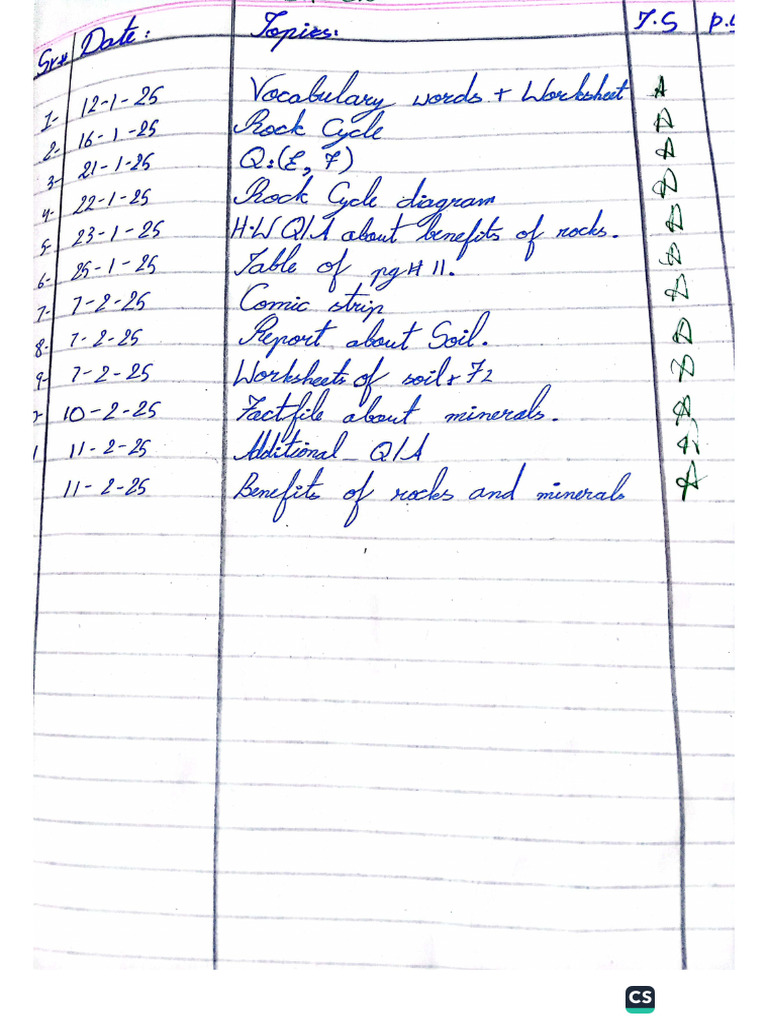 Sr# Date: Topics: T.S P.
1- 12-1-25 Vocabulary words + Worksheet
2- 16-1-25 Rock Cycle
3- 21-1-25 Q:(E, F)
4- 22-1-25 Rock Cycle diagram
5- 23-1-25 H.W Q/A about benefits of rocks.
6- 25-1-25 Table of pg# 11.
7- 7-2-25 Comic strip
8- 7-2-25 Report about Soil.
9- 7-2-25 Worksheets of soil + F2
10-2-25 Factfile about minerals.
11-2-25 Additional Q/A
11-2-25 Benefits of rocks and minerals
CS